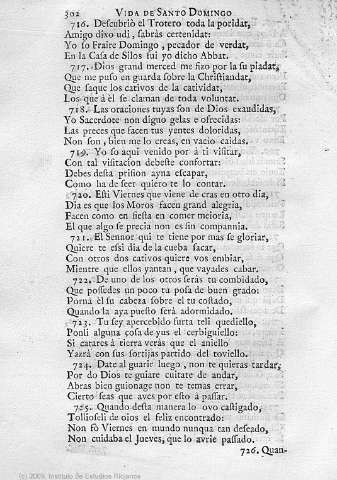 302 VIDA DE SANTO DOMINGO
716. Descubriò el Trotero toda la poridat,
Amigo dixo udi, sabràs certenidat:
Yo so Fraire Domingo, pecador de verdat,
En la Casa de Silos fui yo dicho Abbat.
717. Dios grand merced me fizo por la su piadat,
Que me puso en guarda sobre la Christiandat,
Que saque los cativos de la catividat,
Los que à èl se claman de toda voluntat.
718. Las oraciones tuyas son de Dios exaudidas,
Yo Sacerdote non digno gelas e ofrecidas:
Las preces que facen tus yentes doloridas,
Non son, bien me lo creas, en vacio caidas.
719. Yo so aqui venido por à ti visitar,
Con tal visitacion debeste confortar:
Debes desta prision ayna escapar,
Como ha de seer quiero te lo contar.
720. Esti Viernes que viene de cras en otro dia,
Dia es que los Moros facen grand alegria,
Facen como en fiesta en comer meioria,
El que algo se precia non es sin compannia.
721. El Sennor qui te tiene por mas se gloriar,
Quiere te essi dia de la cueba sacar,
Con otros dos cativos quiere vos enbiar,
Mientre que ellos yantan, que vayades cabar.
722. De uno de los otros seràs tu combidado,
Que possedes un poco tu posa de buen grado:
Pornà èl su cabeza sobre el tu costado,
Quando la aya puesto serà adormidado.
723. Tu sey apercebido furta teli quediello,
Ponli alguna cosa de yus el cerbiguiello:
Si catares à tierra veràs que el aniello
Yazrà con sus sortijas partido del toviello.
724. Date al guarir luego, non te quieras tardar,
Por do Dios te guiare cuitate de andar,
Abras bien guionage non te temas crear,
Cierto seas que aves por esto à passar.
725. Quando desta manera lo ovo castigado,
Tolliòseli de oios el feliz encontrado:
Non fò Viernes en mundo nunqua tan deseado,
Non cuidaba el Jueves, que lo avrie passado.
726. Quan-
(c) 2009, Instituto de Estudios Riojanos